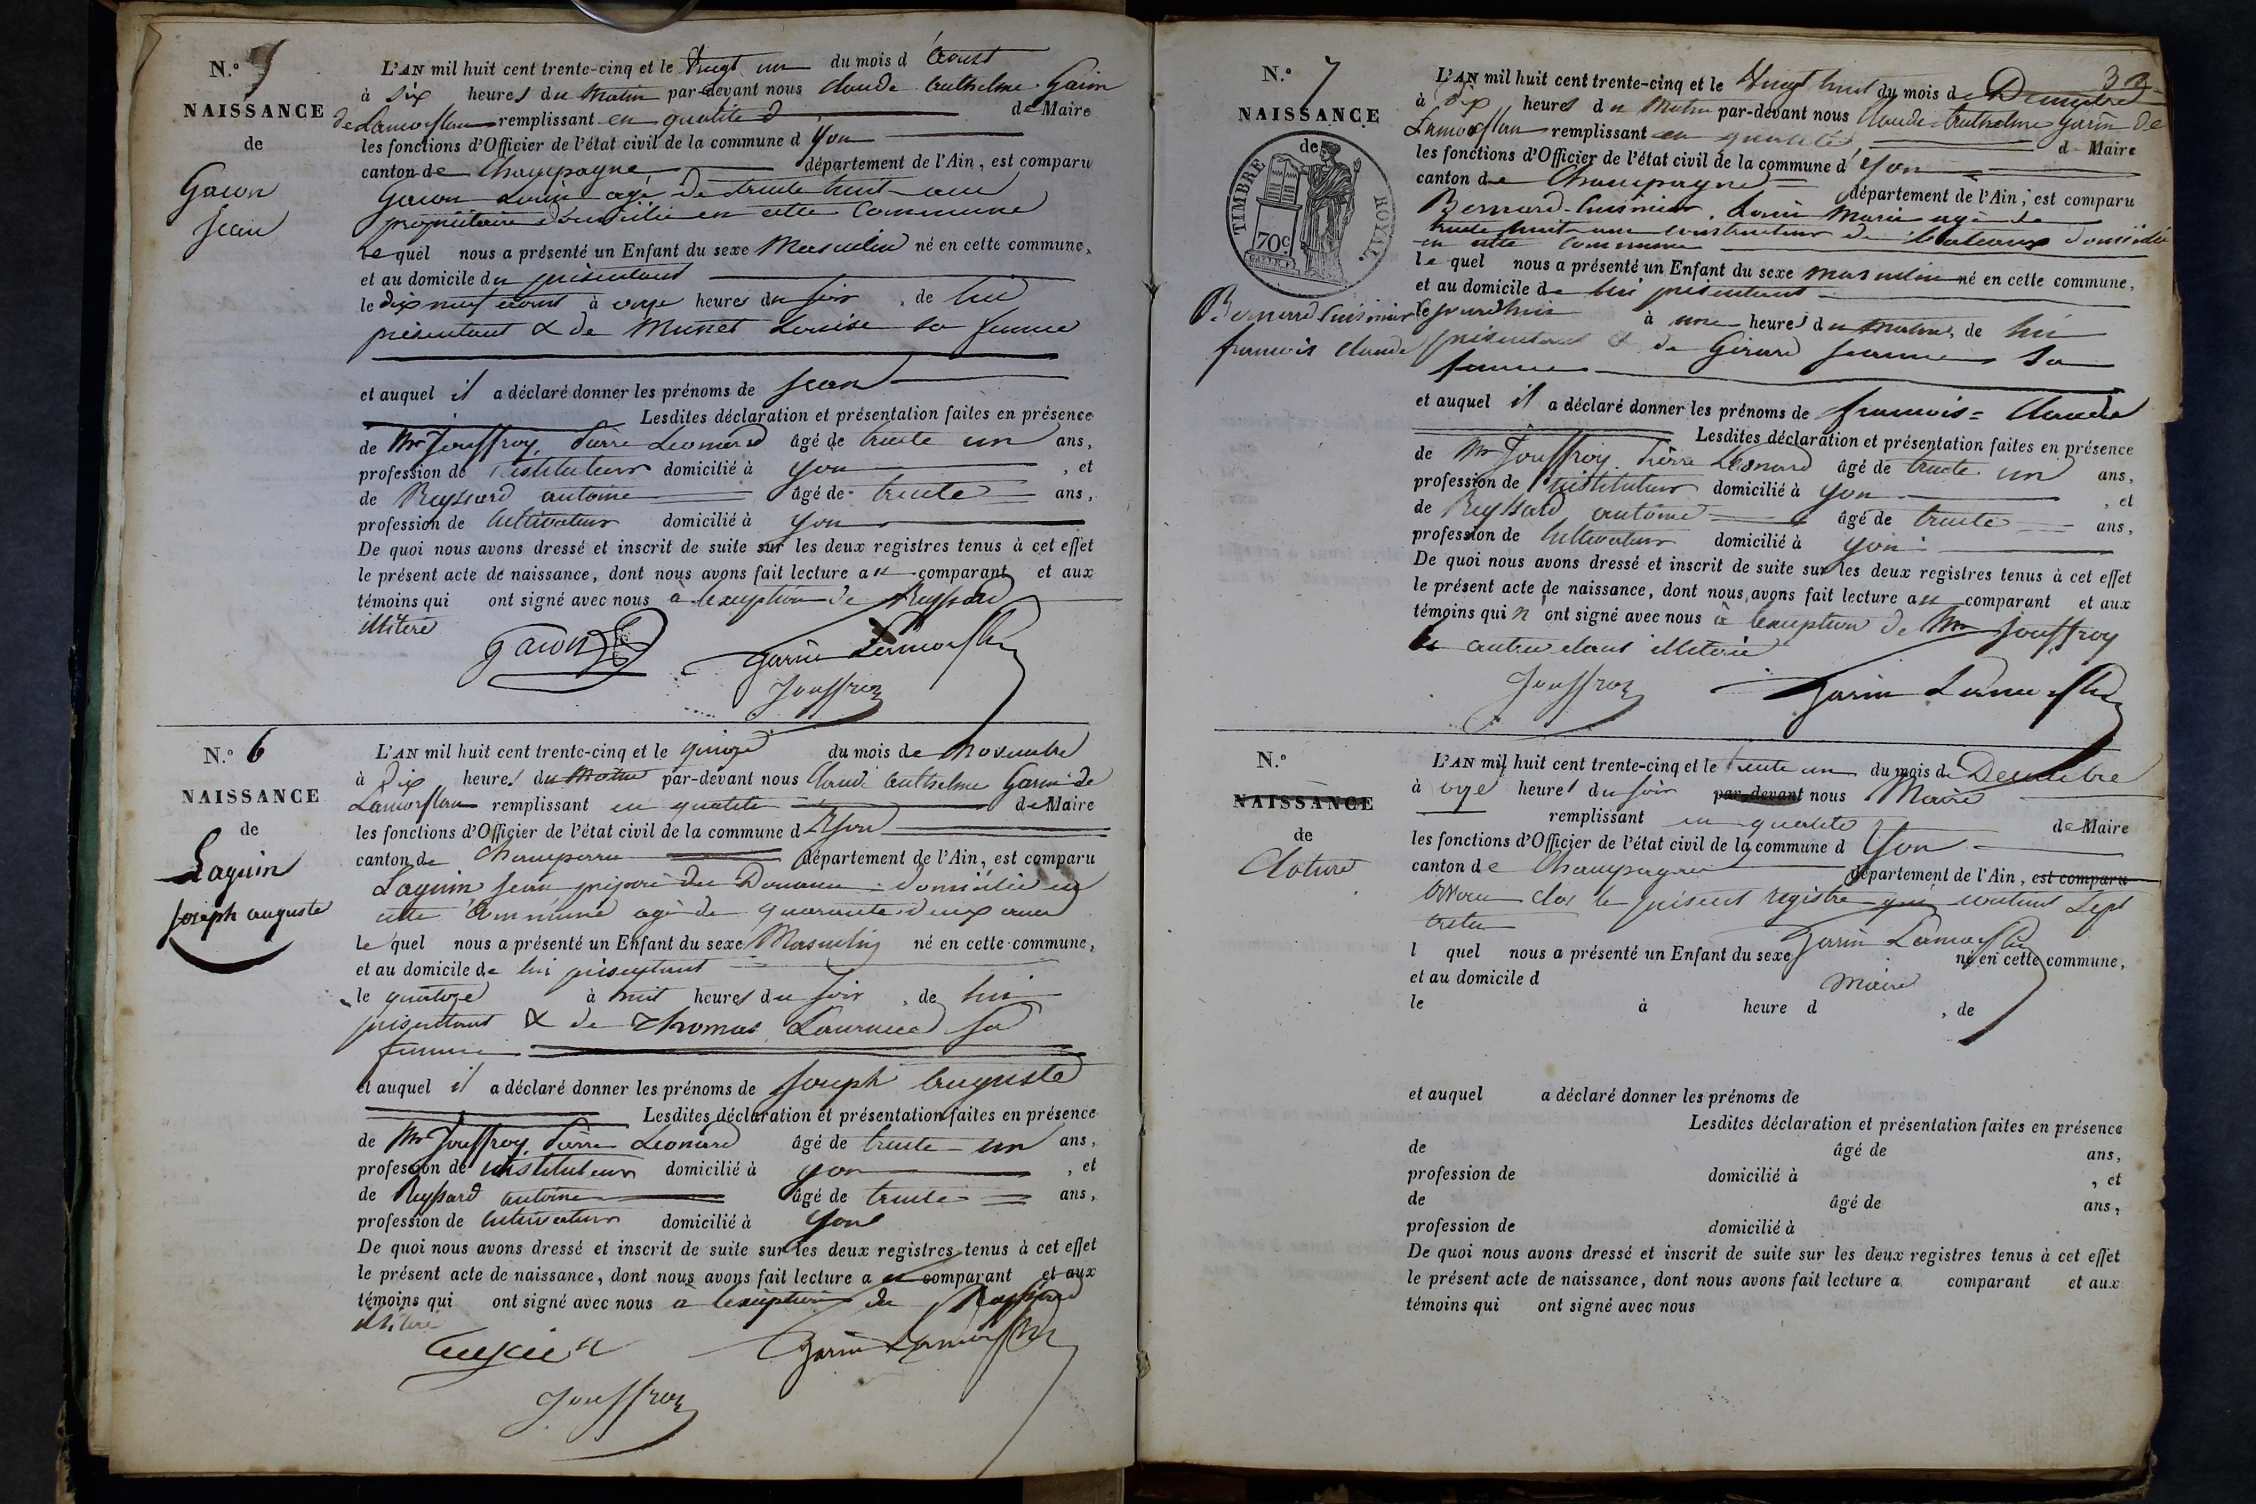 N.o 5
NAISSANCE
de
Gacon
Jean
L'AN mil huit cent trente-cinq et le Vingt un du mois d'Aoust
à six heures du Matin par-devant nous Claude Anthelme Garin
de Lamorflan remplissant en qualité d de Maire
les fonctions d'Officier de l'état civil de la commune d Yon
canton de Champagne département de l'Ain, est comparu
Gacon Louis agé de trente huit ans
propriétaire domicilié en cette Commune
Le quel nous a présenté un Enfant du sexe Masculin né en cette commune,
et au domicile du présentant
le dix neuf courant à onze heures du soir, de lui
présentant & de Munet Louise sa femme
et auquel il a déclaré donner les prénoms de Jean
Lesdites déclaration et présentation faites en présence
de Mr Jouffroy, Pierre Leonard âgé de trente un ans,
profession de instituteur domicilié à Yon, et
de Reyssard antoine âgé de trente ans,
profession de Cultivateur domicilié à Yon
De quoi nous avons dressé et inscrit de suite sur les deux registres tenus à cet effet
le présent acte de naissance, dont nous avons fait lecture au comparant et aux
témoins qui ont signé avec nous à lexception de Reyssard
illiteré
Gacon Garin Lamorflan
Jouffroy
N.o 6
NAISSANCE
de
Laguin
Joseph auguste
L'AN mil huit cent trente-cinq et le quinze du mois de Novembre
à Dix heures du Matin par-devant nous Claude Anthelme Garin de
Lamorflan remplissant en qualité de Maire
les fonctions d'Officier de l'état civil de la commune d'Yon
canton de Champagne département de l'Ain, est comparu
Laguin Jean préposé des Douanes domicilié en
cette Commune agé de quarante deux ans
Le quel nous a présenté un Enfant du sexe Masculin né en cette commune,
et au domicile de lui présentant
le quatorze à huit heures du soir, de lui
présentant & de Thomas Laurence sa
femme
et auquel il a déclaré donner les prénoms de Joseph Auguste
Lesdites déclaration et présentation faites en présence
de Mr Jouffroy, Pierre Leonard âgé de trente un ans,
profession de instituteur domicilié à Yon, et
de Reyssard antoine âgé de trente ans,
profession de Cultivateur domicilié à Yon
De quoi nous avons dressé et inscrit de suite sur les deux registres tenus à cet effet
le présent acte de naissance, dont nous avons fait lecture au comparant et aux
témoins qui ont signé avec nous à lexception de Reyssard
illiteré
Laguin Garin Lamorflan
Jouffroy
N.o 7
NAISSANCE
de
TIMBRE ROYAL.
70c
Bernard Cuisinier
francois Claude
L'AN mil huit cent trente-cinq et le Vingt huit du mois de Decembre
à dix heures du Matin par-devant nous Claude Anthelme Garin de
Lamorflan remplissant en qualité d Maire
les fonctions d'Officier de l'état civil de la commune d'Yon
canton de Champagne département de l'Ain, est comparu
Bernard Cuisinier, Louis Marie agé de
trente huit ans constructeur de bateaux domicilié
en cette commune
le quel nous a présenté un Enfant du sexe masculin né en cette commune,
et au domicile de lui présentant
le jourdhui à une heures du matin, de lui
présentant & de Girard Jeanne sa
femme
et auquel il a déclaré donner les prénoms de francois = Claude
Lesdites déclaration et présentation faites en présence
de Mr Jouffroy Pierre Leonard âgé de trente un ans,
profession de instituteur domicilié à Yon, et
de Reyssard antoine âgé de trente ans,
profession de Cultivateur domicilié à Yon
De quoi nous avons dressé et inscrit de suite sur les deux registres tenus à cet effet
le présent acte de naissance, dont nous avons fait lecture au comparant et aux
témoins qui n'ont signé avec nous à lexception de Mr Jouffroy
les autres étant illiterés
Jouffroy Garin Lamorflan
N.o
NAISSANCE
de
Cloture
L'AN mil huit cent trente-cinq et le trente un du mois de Decembre
à onze heures du soir par-devant nous Maire
remplissant en qualité de Maire
les fonctions d'Officier de l'état civil de la commune d Yon
canton de Champagne département de l'Ain, est comparu
avons clos le présent registre qui contient Sept
actes
l quel nous a présenté un Enfant du sexe Garin Lamorflan né en cette commune,
et au domicile d Maire
le à heure d, de
et auquel a déclaré donner les prénoms de
Lesdites déclaration et présentation faites en présence
de âgé de ans,
profession de domicilié à, et
de âgé de ans,
profession de domicilié à
De quoi nous avons dressé et inscrit de suite sur les deux registres tenus à cet effet
le présent acte de naissance, dont nous avons fait lecture a comparant et aux
témoins qui ont signé avec nous